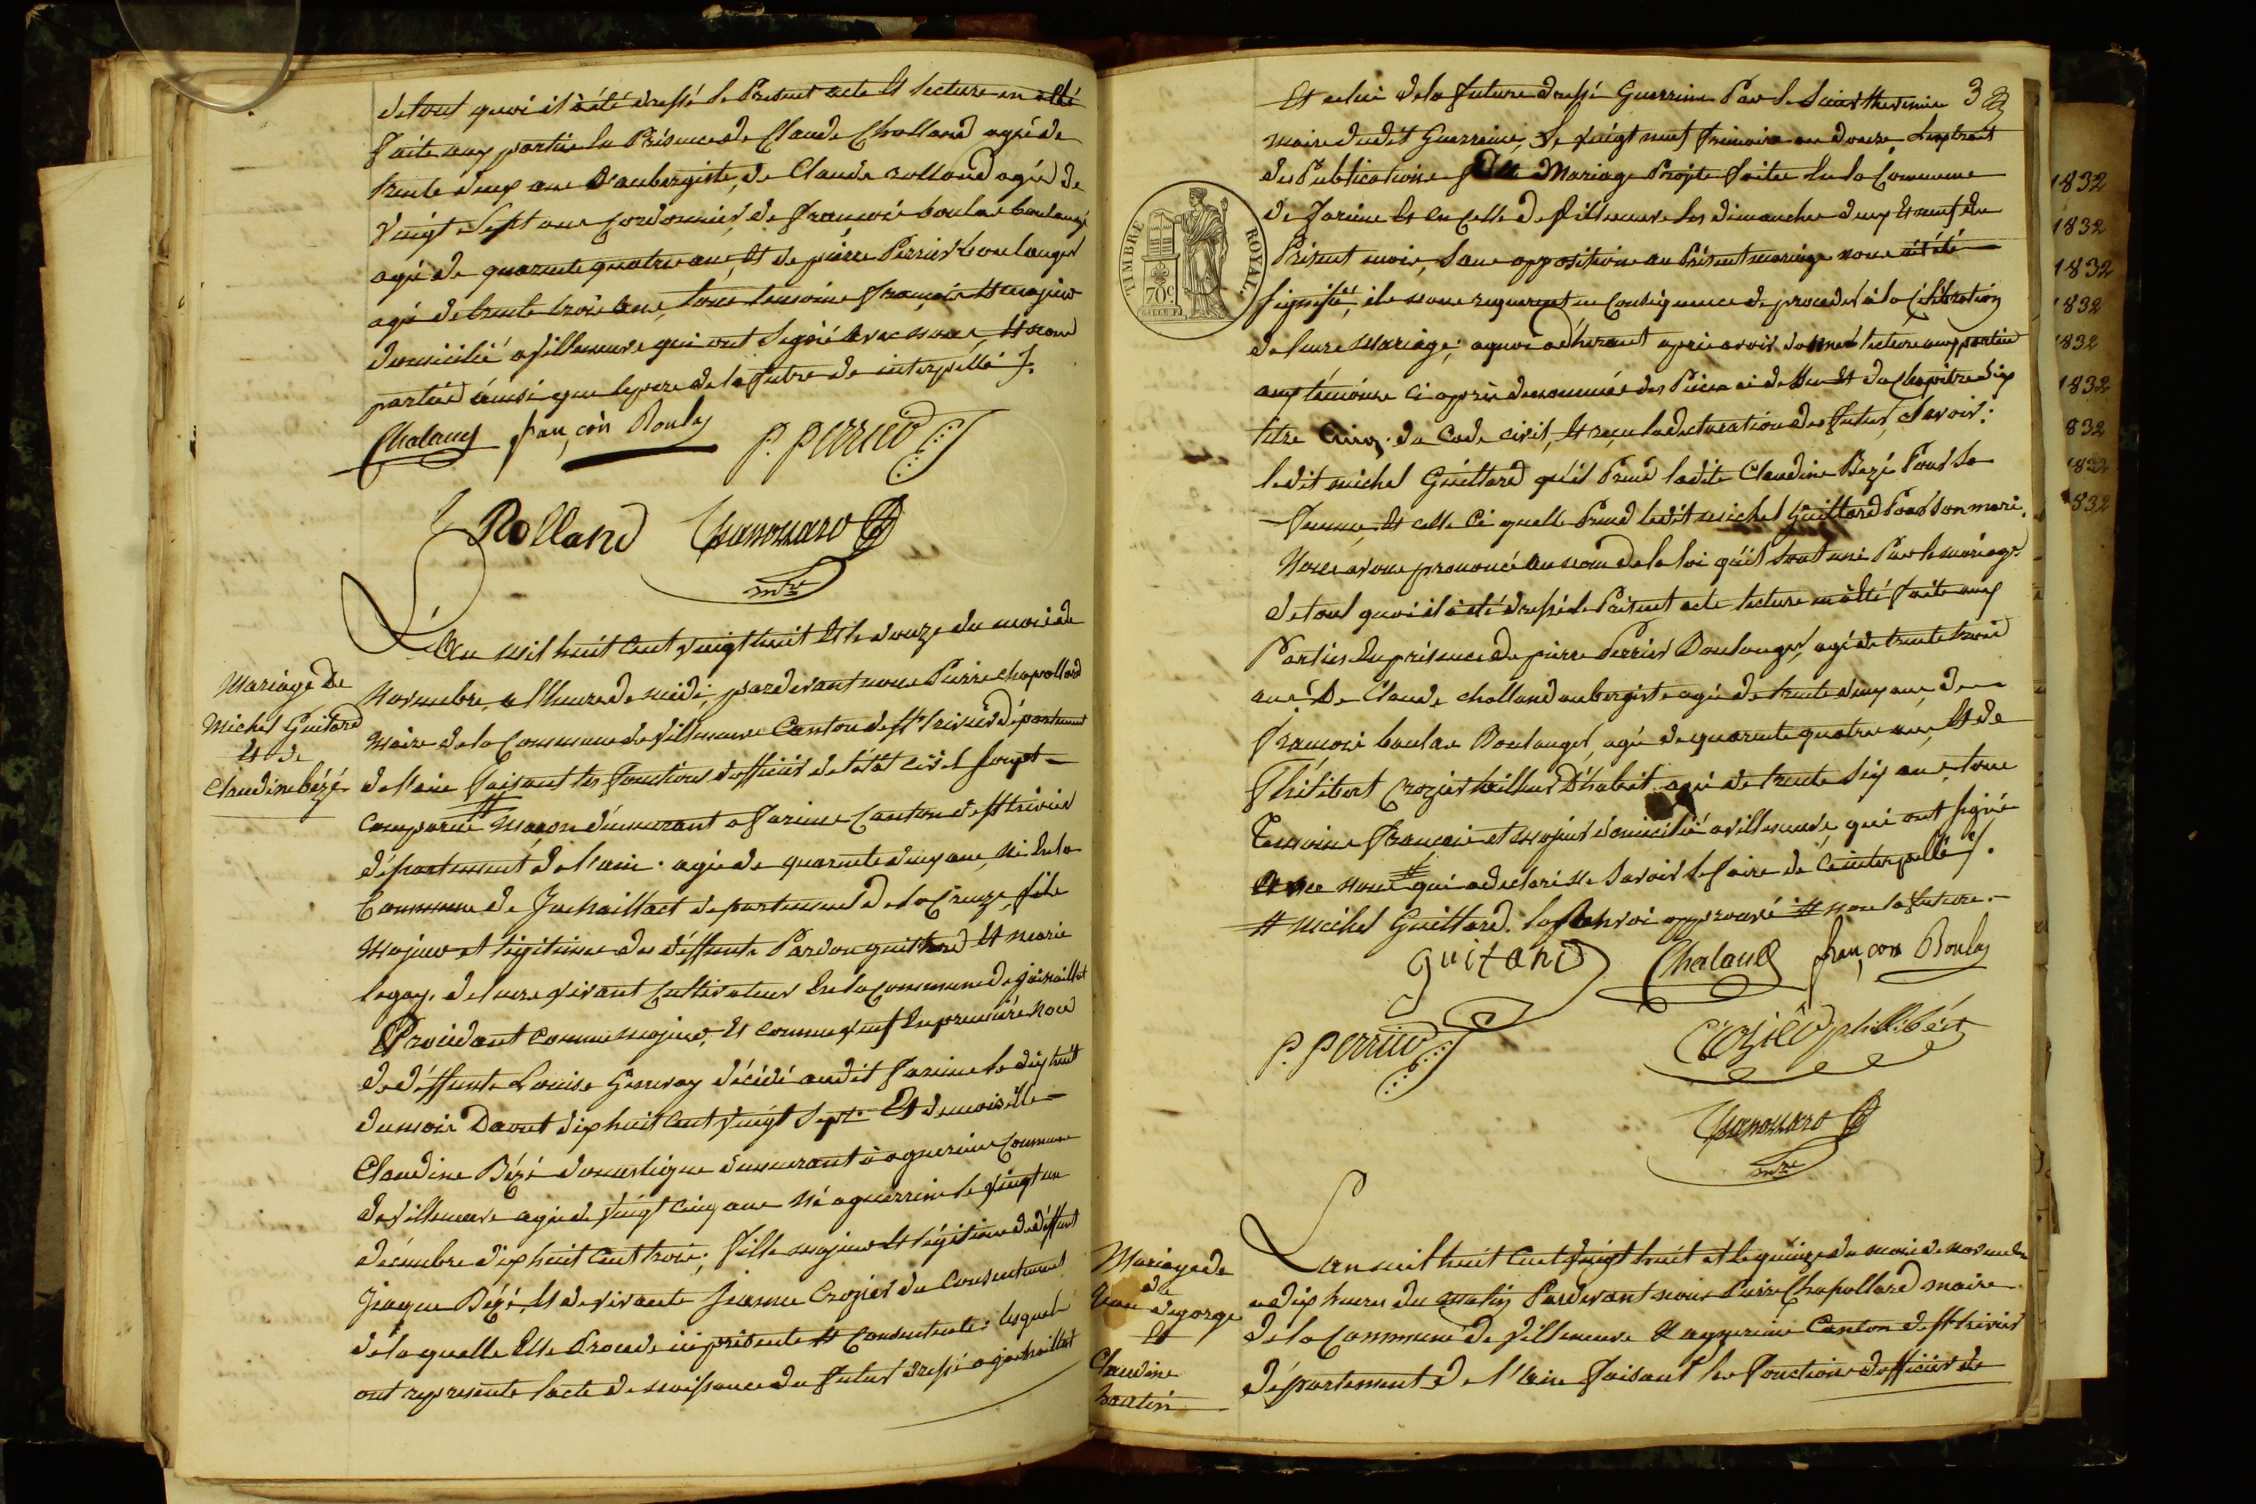 de tout quoi il à été dressé le Present acte Et lecture en a été
faite aux parties En Présence de Claude Challand agé de
trente deux ans D'aubergiste, de Claude Rolland agé de
vingt Sept ans Cordonnier, de françois boulas boulangé
agé de quarente quatre ans, Et de pierre Perrier boulanger
agé de trente trois ans, tous temoins français Et majeur
domicilié a villeneuve qui ont Signé avec nous, Et non
parties ainsi que le pere de la future de interpellé ./.
Chaland françois Boulas P. Perrier
Rolland
mre
L'an mil huit Cent vingt huit Et le douze du mois de
Novembre, a l'heure de midi, pardevant nous Pierre Chapollard
Maire de la Commune de villeneuve Canton de St trivier département
de l'ain faisant les fonctions d'officier de l'état civil Soupt
Mariage De
Michel Guitard
Et de
Claudine bézé
comparu Maçon demeurant a farino Canton de St trivier
département de l'ain. agé de quarente deux ans, né En la
Commune de Jachaillact departement de la Creuze, fils
Majeur et légitime des déffunts Pardon guittard Et marie
legay, de leurs vivant Cultivateurs En la Commune de
Procédant comme majeur, Et comme veuf En premiere Noce
de déffunte Louise décédé audit farino le dix huit
du mois D'aout dix huit Cent vingt Sept. Et demoiselle
Claudine Bézé domestique demeurant à aguerine Commune
de villeneuve agée de vingt Cinq ans Né aguerrine le vingt un
décembre dix huit Cent trois, fille majeur Et légitime de déffunt
Jaque Bézé, Et de vivante Jeanne Crozier du Consentement
de la quelle Elle Procede ici présente Et Consentente: lesquels
ont representé l'acte de naissance du futur dressé a jachaillat
Et celui de la future dressé Guerrine Par le Sieur 38
maire dudit Guerrine, Le vingt neuf frimaire an douze, L'extrait
des Publications Du Mariage Projeté faites En la Commune
de farino Et En Celle de villeneuve les dimanches deux Et neuf du
Present mois, Sans opposition au Présent mariage nous a été
signifié, ils nous requerent en Conséquence de proceder à la Célébration
de leurs Mariage, a quoi adhérant aprés avoir donné lecture aux parties
aux témoins ci aprés denommés des Piéces ci dessus Et du Chapitre Six
titre Cinq. du Code civil, Et reçu la declaration des futur, Savoir:
ledit michel Guittard qu'il Prend ladite Claudine Bezé Pour Sa
femme, Et celle Ci quelle Prend ledit michel Guittard Pour Son mari.
Nous avons prononcé au nom de la loi qu'il Sont uni Par le mariage.
de tout quoi il à été dressé le Présent acte lecture en à été faite aux
Parties En présence de pierre Perrier Boulanger, agé de trente trois
ans. De Claude challand aubergiste agé de trente deux ans, de
françois boulas Boulanger, agé de quarente quatre ans, Et de
Philibert Crozier tailleur D'habit agé de trente Six ans, tous
Temoins français et majeur domicilié a villeneuve qui ont signé
Avec nous qui a declaré ne Savoir le faire de Ce interpellé ./.
# michel Guittard. le Renvoi approuvé # non la future.
guitard Chaland françois Boulas
P. Perrier Crozier phillibért
mre
TIMBRE ROYAL.
70 c
Mariage de
Degorge
Et
Claudine
L'an mil huit Cent vingt huit et le quinze du mois de novembre
a dix heures du matin Pardevant nous Pierre Chapollard maire
de la Commune de villeneuve Et aguerine Canton de St trivier
département de l'ain faisant les fonctions d'officier de
1832
1832
1832
1832
1832
1832
832
1832
1832